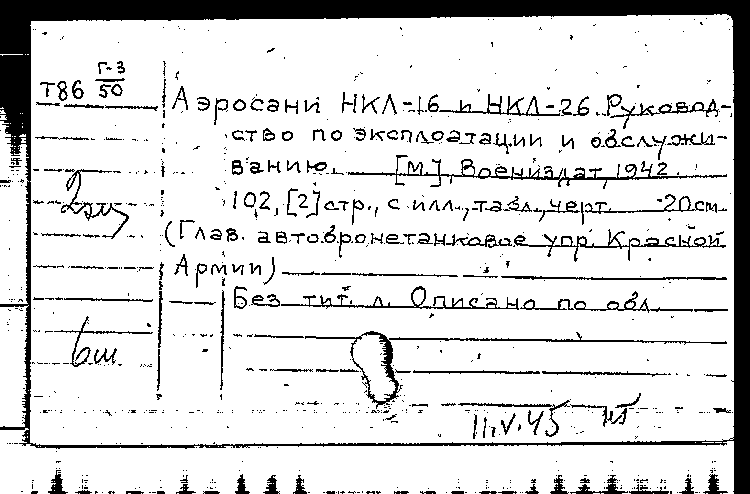 Т86 Г-3/50
Аэросани НКЛ-16 и НКЛ-26. Руковод-
ство по эксплоатации и обслужи-
ванию. [М.], Воениздат, 1942.
102, [2] стр., с илл., табл., черт. 20см
(Глав. автобронетанковое упр. Красной
Армии)
Без тит. л. Описано по обл.
2эк
6ш.
11.V.45